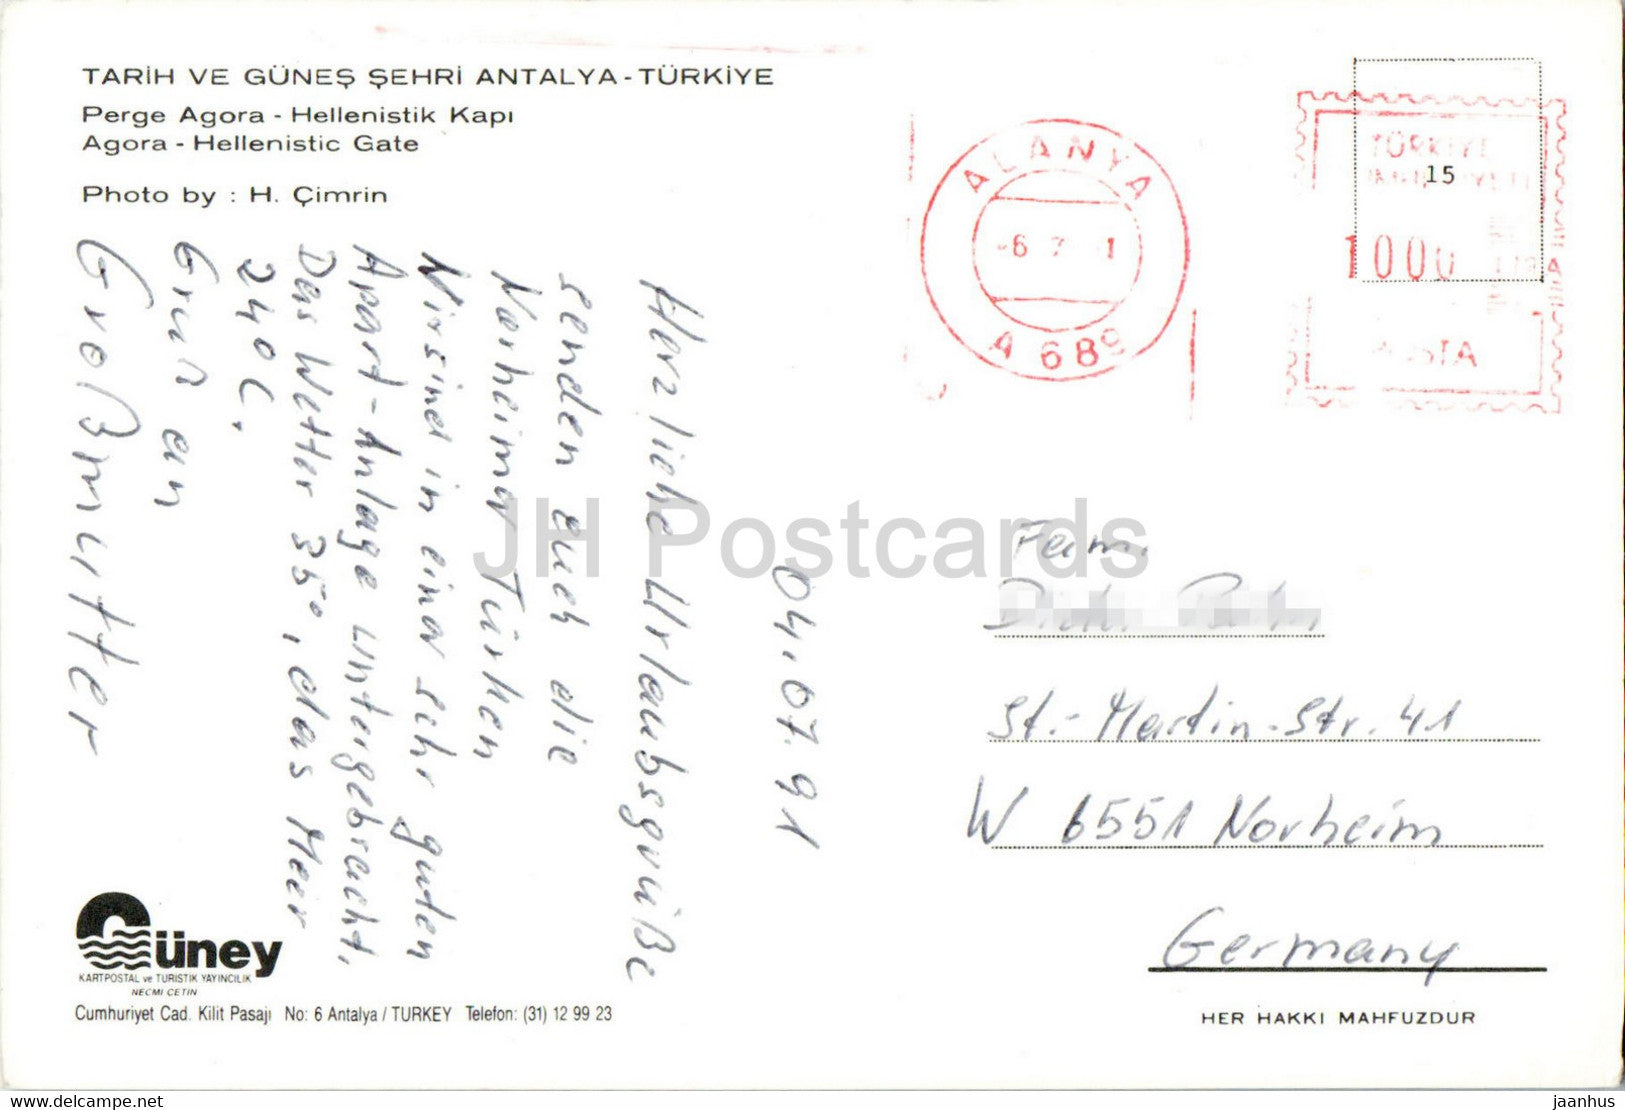 TARİH VE GÜNEŞ ŞEHRİ ANTALYA - TÜRKİYE
Perge Agora - Hellenistik Kapı
Agora - Hellenistic Gate
Photo by : H. Çimrin
04.07.91
Herzliche Urlaubsgrüße
senden euch die
Norheimer Türken
Wir sind in einer sehr guten
Apart-Anlage untergebracht.
Das Wetter 35°, das Meer
24°C.
Gruß an
Großmutter
ALANYA
-6 7 1
A 689
TÜRKİYE
15
1000
Fam.
St.-Martin-Str. 41
W 6551 Norheim
Germany
HER HAKKI MAHFUZDUR
Güney
KARTPOSTAL ve TURİSTİK YAYINCILIK
NECMİ ÇETİN
Cumhuriyet Cad. Kilit Pasajı No: 6 Antalya / TURKEY Telefon: (31) 12 99 23
JH Postcards
delcampe.net
jaanhus